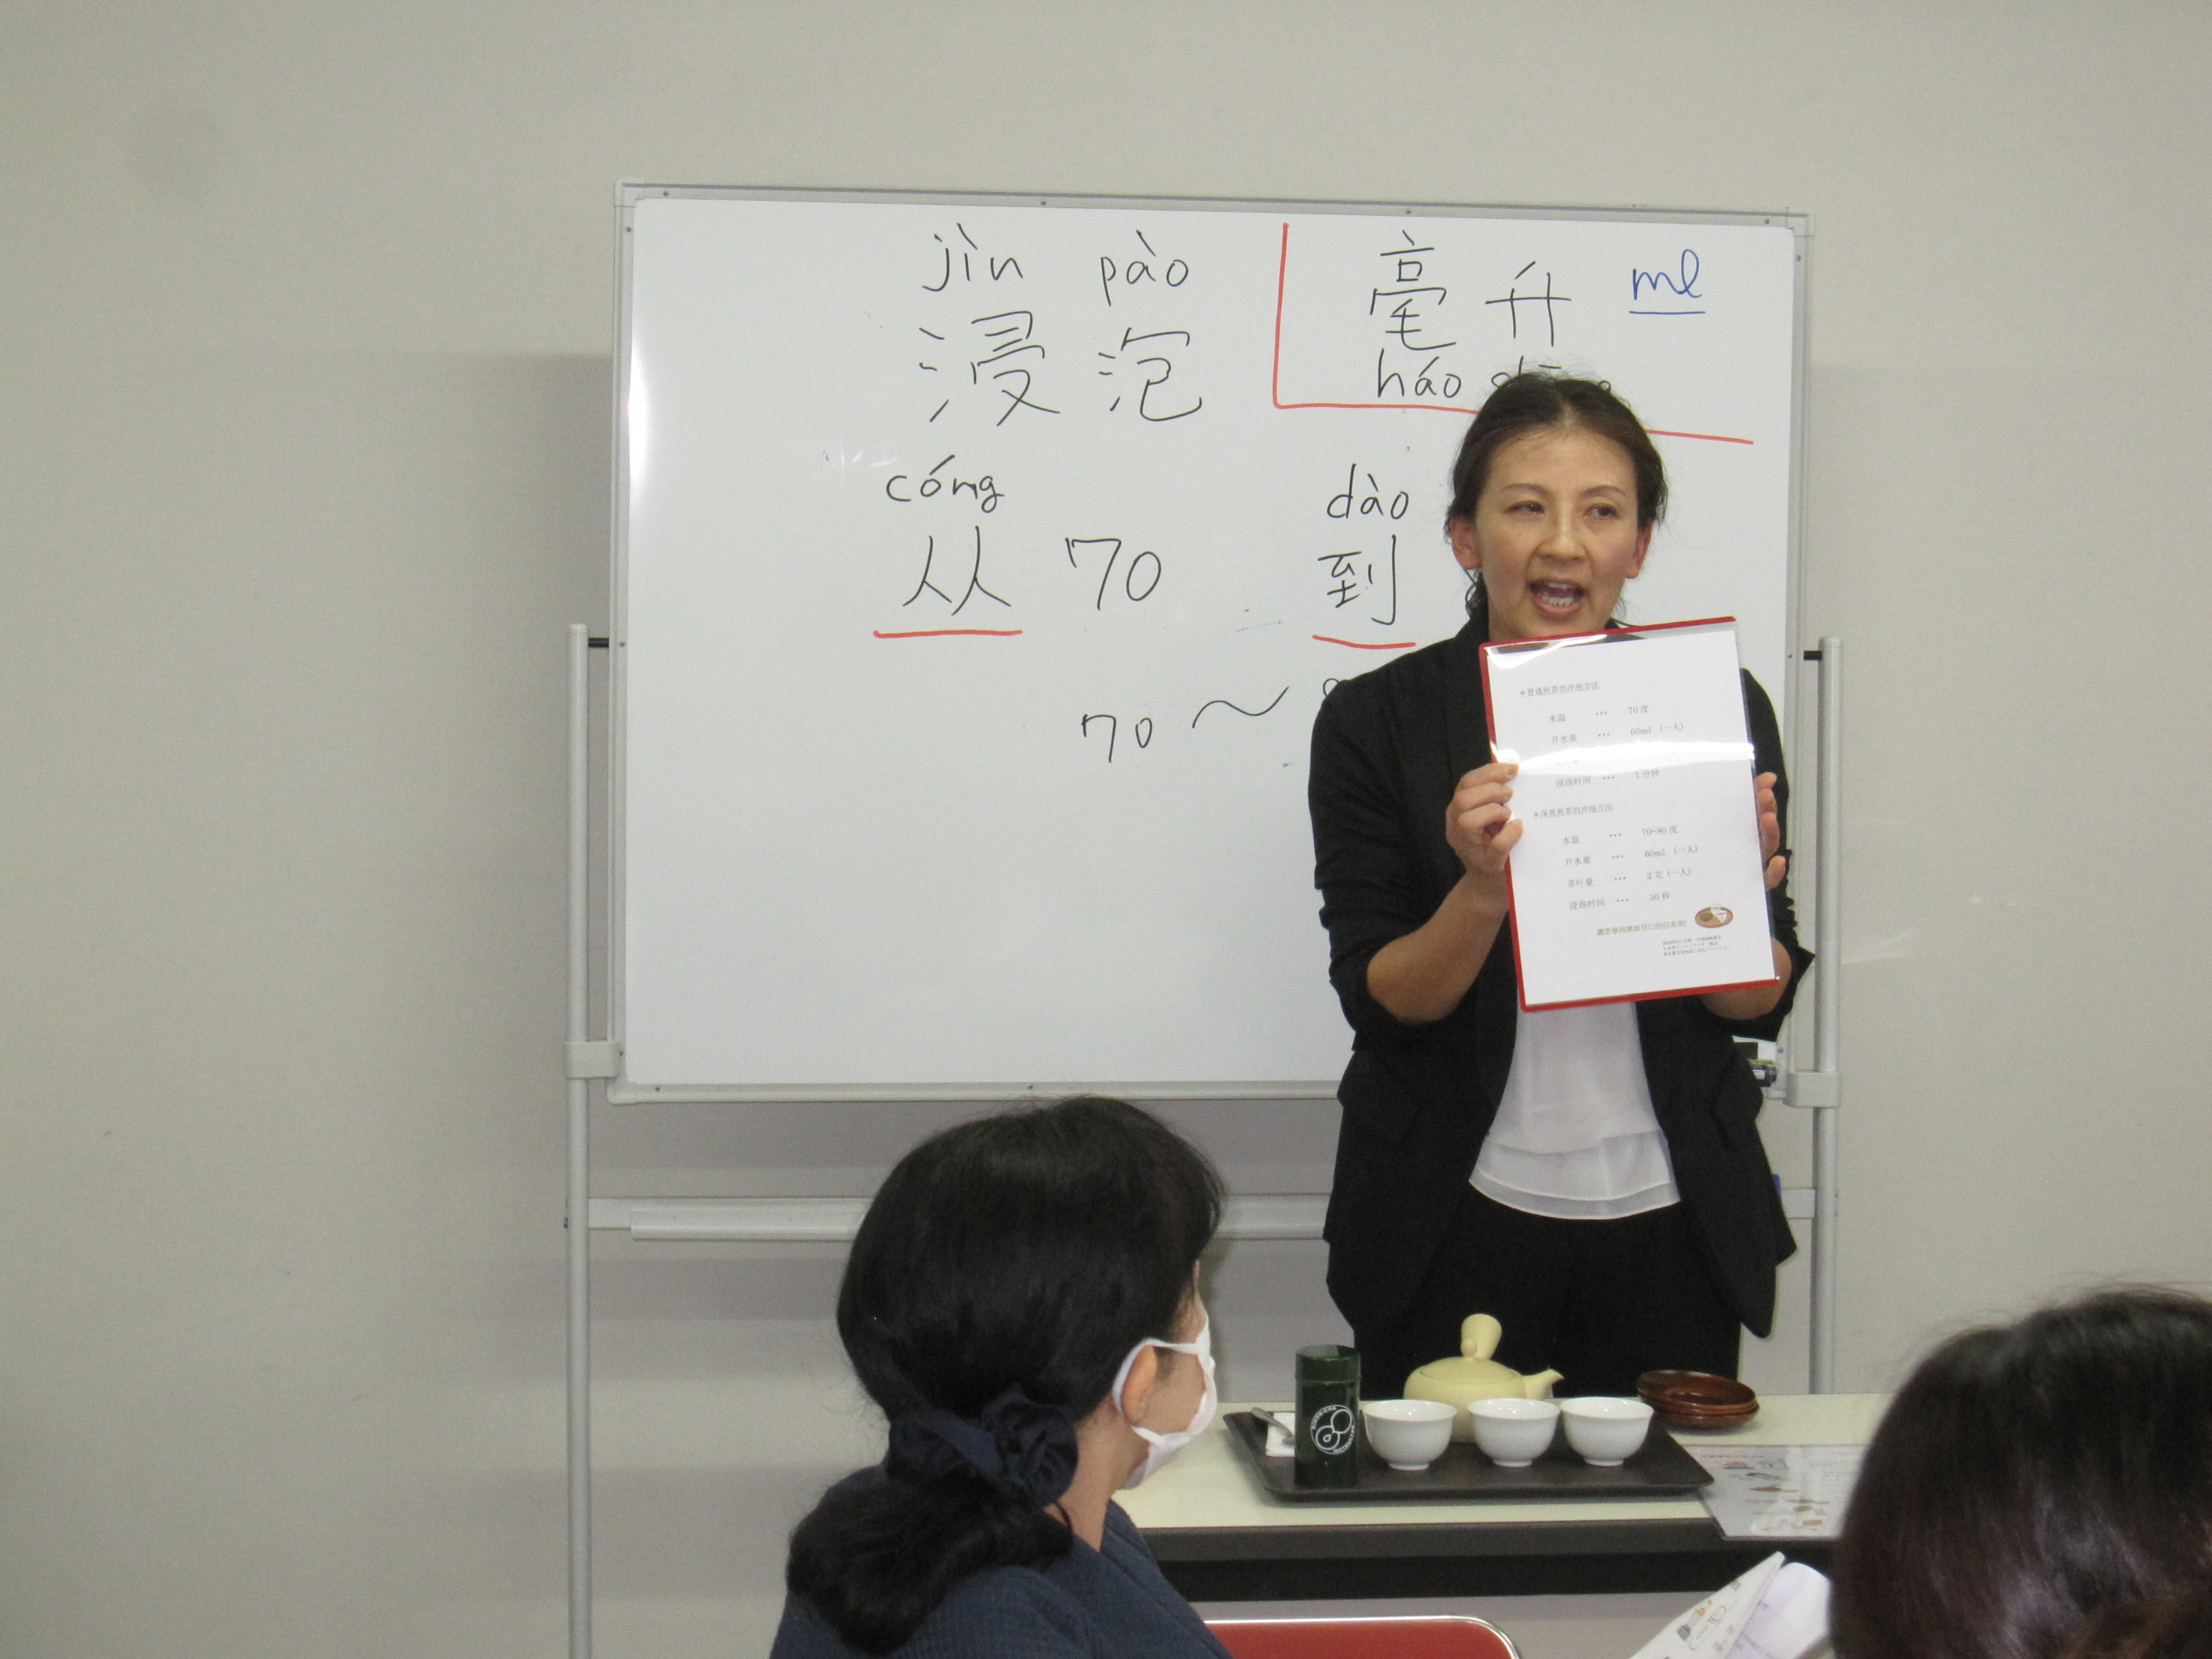 jìn pào
浸泡
毫升 ml
háo
cóng
从 70
dào
到
70 ~
*普通煎茶的冲泡方法
水温 … 70度
开水量 … 60ml (一人)
浸泡时间 … 1分钟
*深蒸煎茶的冲泡方法
水温 … 70~80度
开水量 … 60ml (一人)
茶叶量 … 2克 (一人)
浸泡时间 … 30秒